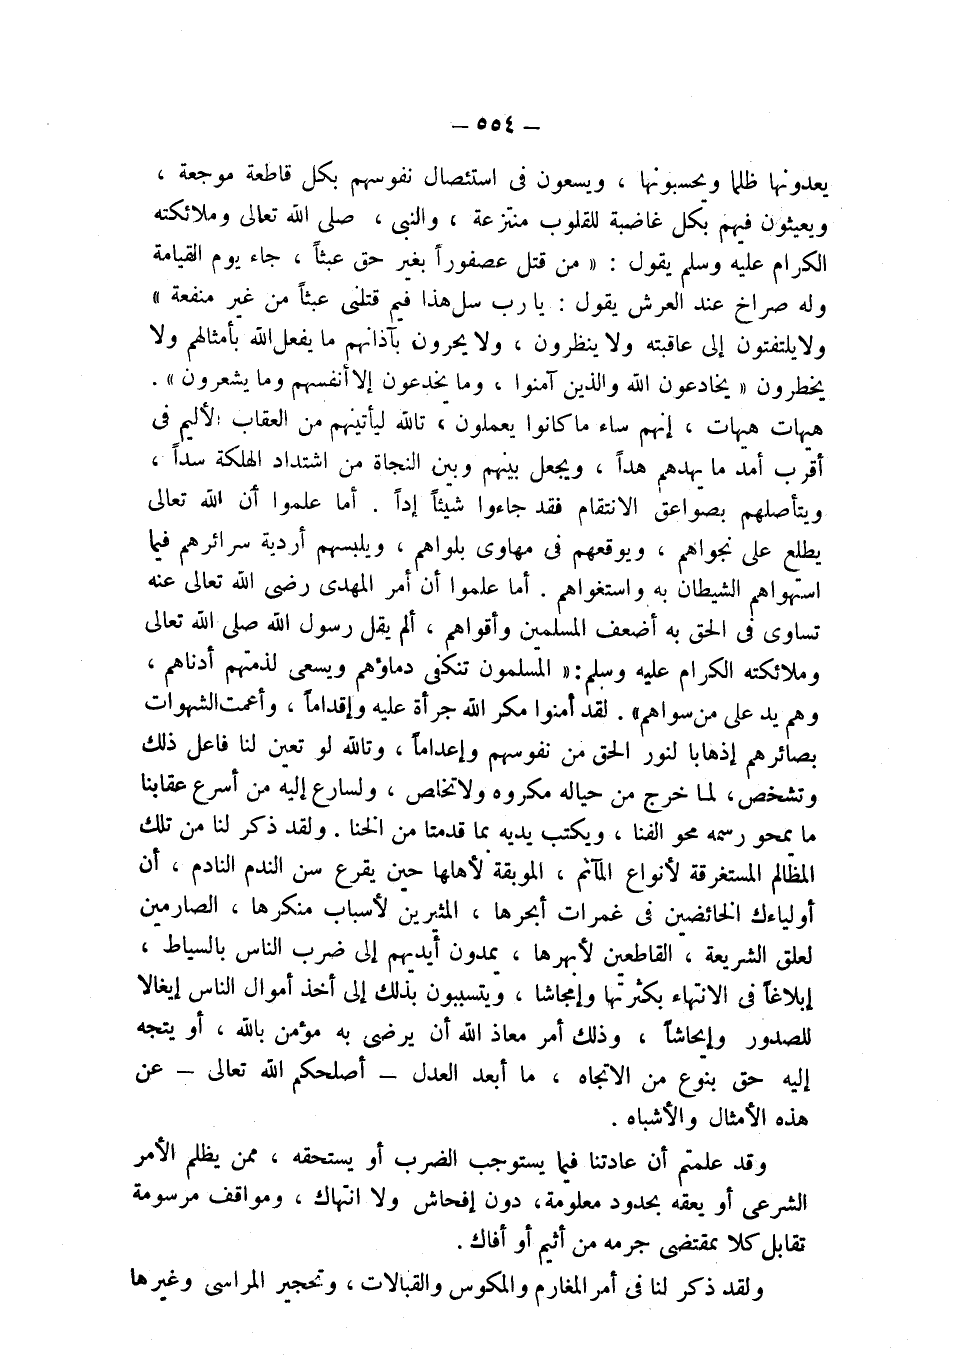 — ٥٥٤ —
يعدونها ظلما ويحسبونها ، ويسعون فى استئصال نفوسهم بكل قاطعة موجعة ،
ويعيثون فيهم بكل غاضبة للقلوب منتزعة ، والنبى ، صلى الله تعالى وملائكته
الكرام عليه وسلم يقول : « من قتل عصفوراً بغير حق عبثاً ، جاء يوم القيامة
وله صراخ عند العرش يقول : يا رب سل هذا فيم قتلنى عبثاً من غير منفعة »
ولا يلتفتون إلى عاقبته ولا ينظرون ، ولا يحرون بآذانهم ما يفعل الله بأمثالهم ولا
يخطرون « يخادعون الله والذين آمنوا ، وما يخدعون إلا أنفسهم وما يشعرون » .
هيهات هيهات ، إنهم ساء ما كانوا يعملون ، تالله ليأتينهم من العقاب الأليم فى
أقرب أمد ما يهدهم هداً ، ويجعل بينهم وبين النجاة من اشتداد الهلكة سداً ،
ويتأصلهم بصواعق الانتقام فقد جاءوا شيئاً إداً . أما علموا أن الله تعالى
يطلع على نجواهم ، ويوقعهم فى مهاوى بلواهم ، ويلبسهم أردية سرائرهم فيما
استهواهم الشيطان به واستغواهم . أما علموا أن أمر المهدى رضى الله تعالى عنه
تساوى فى الحق به أضعف المسلمين وأقواهم ، ألم يقل رسول الله صلى الله تعالى
وملائكته الكرام عليه وسلم : « المسلمون تتكفى دماؤهم ويسعى لذمتهم أدناهم ،
وهم يد على من سواهم » . لقد أمنوا مكر الله جرأة عليه وإقداماً ، وأعمت الشهوات
بصائرهم إذهابا لنور الحق من نفوسهم وإعداماً ، وتالله لو تعين لنا فاعل ذلك
وتشخص ، لما خرج من حياله مكروه ولا تخاص ، ولسارع إليه من أسرع عقابنا
ما يمحو رسمه محو الفنا ، ويكتب يديه بما قدمتا من الخنا . ولقد ذكر لنا من تلك
المظالم المستغرقة لأنواع المآثم ، الموبقة لأهلها حين يقرع سن الندم النادم ، أن
أولياءك الخائضين فى غمرات أبحرها ، المثيرين لأسباب منكرها ، الصارمين
لعلق الشريعة ، القاطعين لأبهرها ، يمدون أيديهم إلى ضرب الناس بالسياط ،
إبلاغاً فى الانتهاء بكثرتها وإمجاشا ، ويتسببون بذلك إلى أخذ أموال الناس إيغالا
للصدور وإيحاشاً ، وذلك أمر معاذ الله أن يرضى به مؤمن بالله ، أو يتجه
إليه حق بنوع من الاتجاه ، ما أبعد العدل — أصلحكم الله تعالى — عن
هذه الأمثال والأشباه .
وقد علمتم أن عادتنا فيما يستوجب الضرب أو يستحقه ، ممن يظلم الأمر
الشرعى أو يعقه بحدود معلومة ، دون إفحاش ولا انتهاك ، ومواقف مرسومة
تقابل كلا بمقتضى جرمه من أثيم أو أفاك .
ولقد ذكر لنا فى أمر المغارم والمكوس والقبالات ، وتحجير المراسى وغيرها